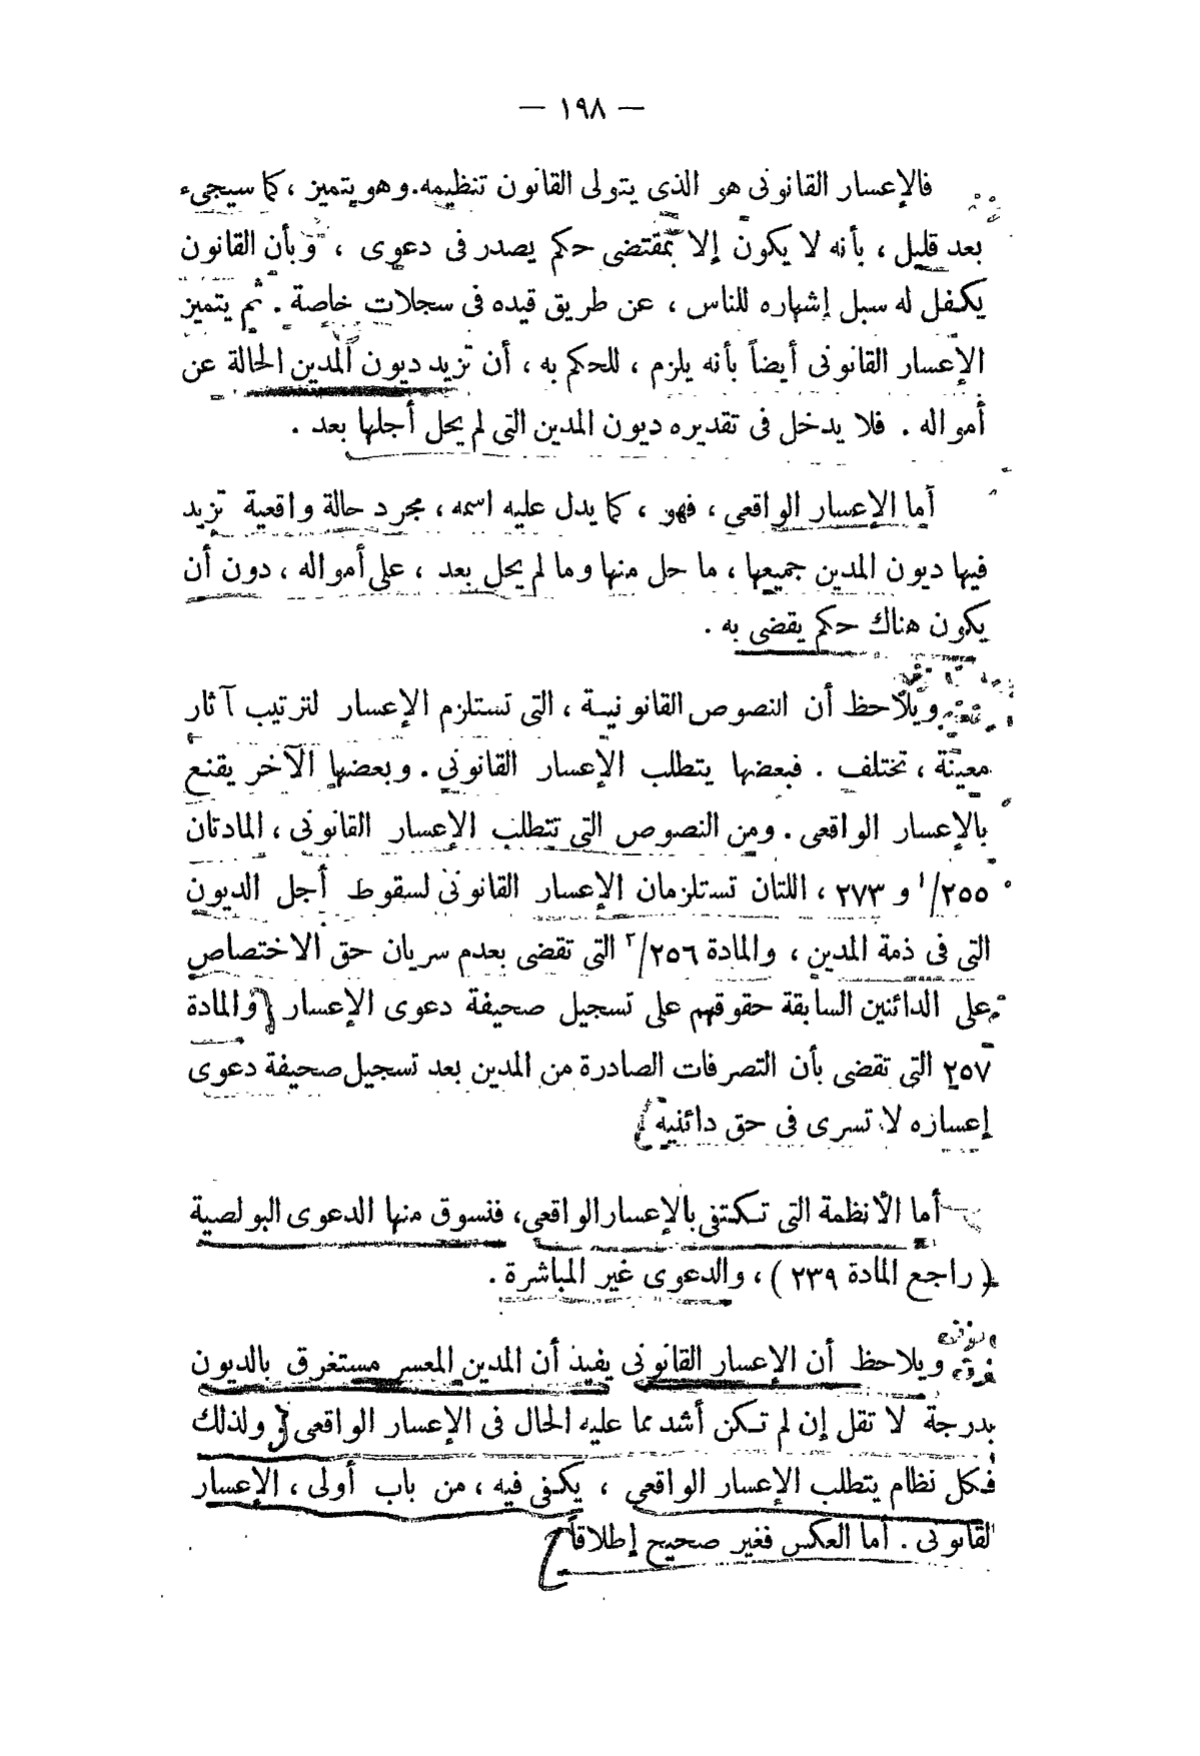 — ١٩٨ —
فالإعسار القانونى هو الذى يتولى القانون تنظيمه. وهو يتميز ، كما سيجىء
بعد قليل ، بأنه لا يكون إلا بمقتضى حكم يصدر فى دعوى ، وبأن القانون
يكفل له سبل إشهاره للناس ، عن طريق قيده فى سجلات خاصة . ثم يتميز
الإعسار القانونى أيضاً بأنه يلزم ، للحكم به ، أن تزيد ديون المدين الحالة عن
أمواله . فلا يدخل فى تقديره ديون المدين التى لم يحل أجلها بعد .
أما الإعسار الواقعى ، فهو ، كما يدل عليه اسمه ، مجرد حالة واقعية تزيد
فيها ديون المدين جميعها ، ما حل منها وما لم يحل بعد ، على أمواله ، دون أن
يكون هناك حكم يقضى به .
ويلاحظ أن النصوص القانونية ، التى تستلزم الإعسار لترتيب آثار
معينة ، تختلف . فبعضها يتطلب الإعسار القانونى . وبعضها الآخر يقنع
بالإعسار الواقعى . ومن النصوص التى تتطلب الإعسار القانونى ، المادتان
٢٥٥/١ و ٢٧٣ ، اللتان تستلزمان الإعسار القانونى لسقوط أجل الديون
التى فى ذمة المدين ، والمادة ٢٥٦/٢ التى تقضى بعدم سريان حق الاختصاص
على الدائنين السابقة حقوقهم على تسجيل صحيفة دعوى الإعسار والمادة
٢٥٧ التى تقضى بأن التصرفات الصادرة من المدين بعد تسجيل صحيفة دعوى
إعساره لا تسرى فى حق دائنيه
أما الأنظمة التى تكتفى بالإعسار الواقعى، فنسوق منها الدعوى البولصية
( راجع المادة ٢٣٩ ) ، والدعوى غير المباشرة .
ويلاحظ أن الإعسار القانونى يفيد أن المدين المعسر مستغرق بالديون
بدرجة لا تقل إن لم تكن أشد مما عليه الحال فى الإعسار الواقعى ولذلك
فكل نظام يتطلب الإعسار الواقعى ، يكفى فيه ، من باب أولى ، الإعسار
القانونى . أما العكس فغير صحيح إطلاقاً